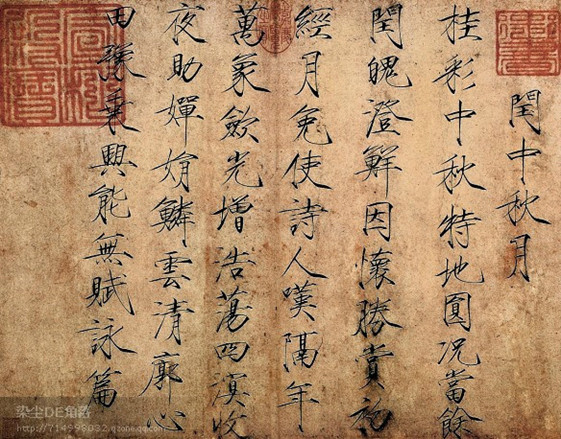 閏中秋月
桂彩中秋特地圓況當餘
閏魄澄鮮因懷勝賞初
經月免使詩人嘆隔年
萬象斂光增浩蕩四溟收
夜助嬋娟鱗雲清廓心
田豫乘興能無賦詠篇
染尘DE角落